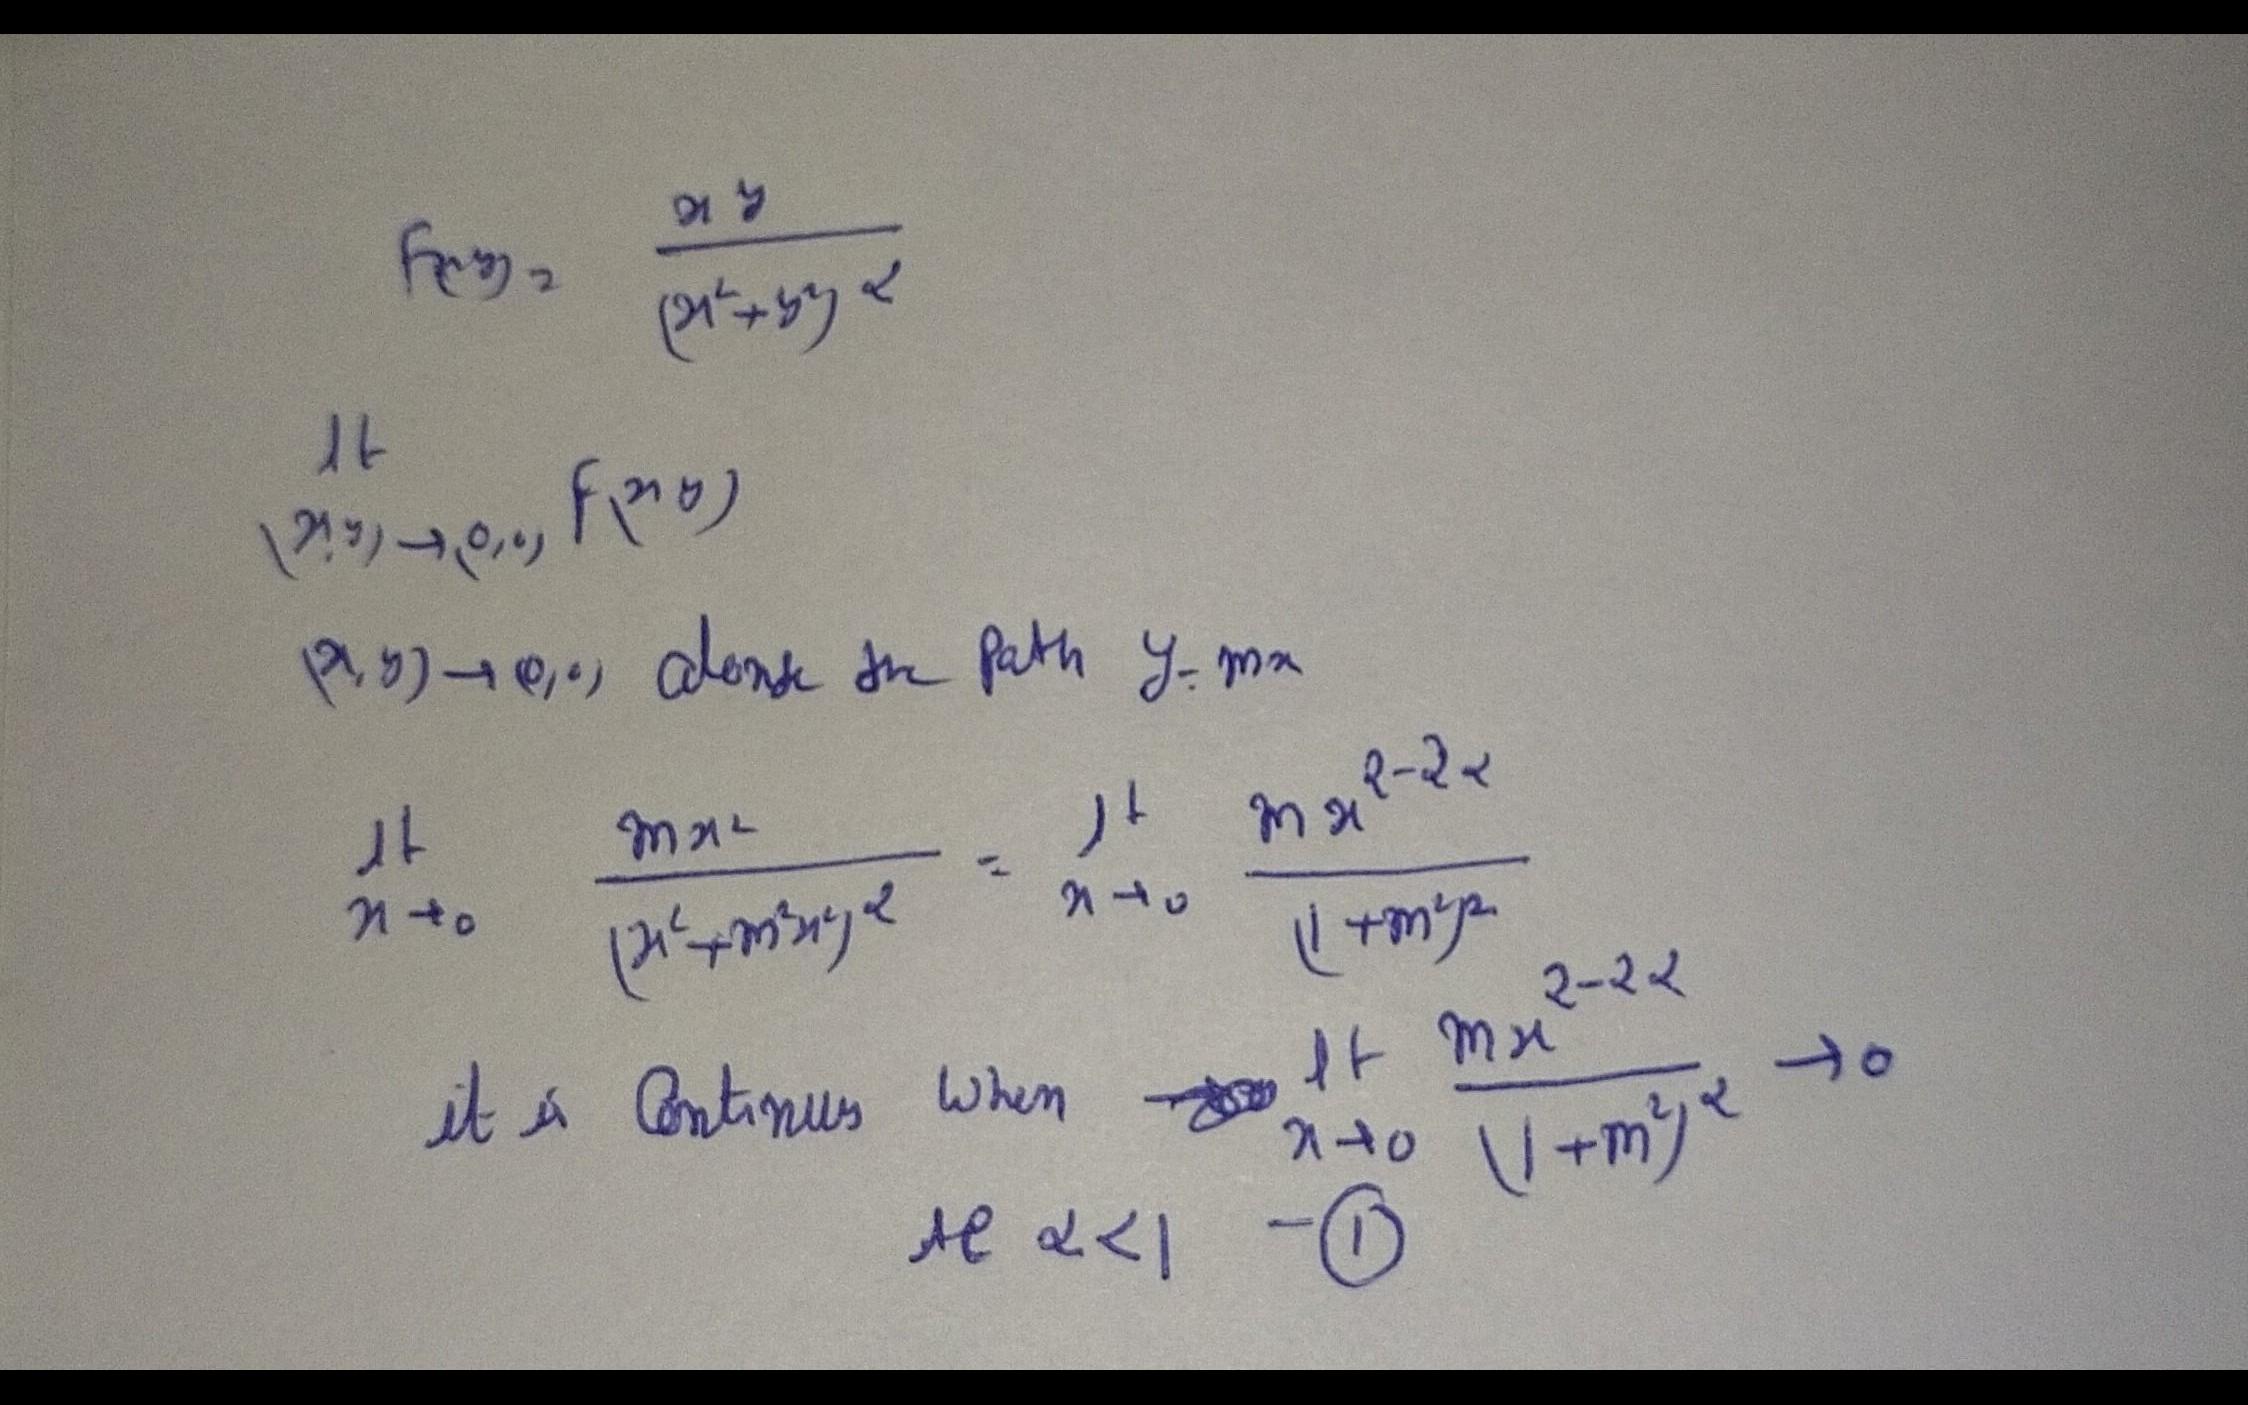 f(x,y) = xy / (x²+y²)^α
lt (x,y)→(0,0) f(x y)
(x,y)→(0,0) along the path y=mx
lt x→0 mx² / (x²+m²x²)^α = lt x→0 mx^(2-2α) / (1+m²)^α
it is Continus when lt x→0 mx^(2-2α) / (1+m²)^α →0
α<1 -①